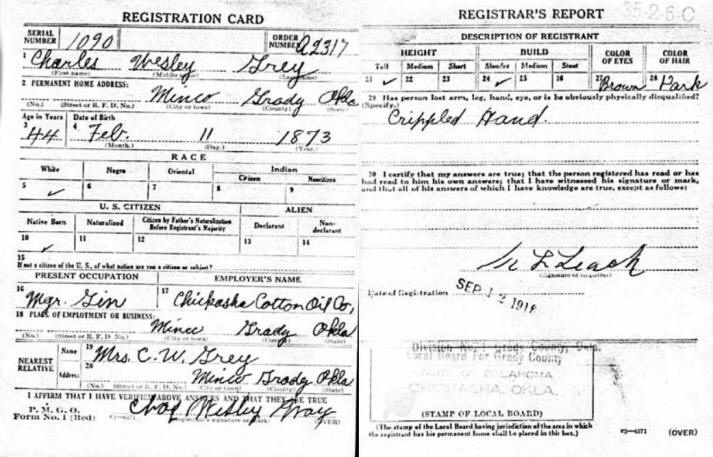 REGISTRATION CARD
SERIAL NUMBER 1090
ORDER NUMBER A2317
1 Charles Wesley Grey
(First name) (Middle name) (Last name)
2 PERMANENT HOME ADDRESS:
Minco Grady Okla
(No.) (Street or R. F. D. No.) (City or town) (County) (State)
Age in Years Date of Birth
3 44 4 Feb. 11 1873
(Month.) (Day.) (Year.)
RACE
White Negro Oriental Indian
Citizen Noncitizen
5 ✓ 6 7 8 9
U. S. CITIZEN ALIEN
Native Born Naturalized Citizen by Father's Naturalization Before Registrant's Majority Declarant Non-declarant
10 ✓ 11 12 13 14
15
If not a citizen of the U. S., of what nation are you a citizen or subject?
PRESENT OCCUPATION EMPLOYER'S NAME
16 Mgr. Gin 17 Chickasha Cotton Oil Co,
18 PLACE OF EMPLOYMENT OR BUSINESS:
Minco Grady Okla
(No.) (Street or R. F. D. No.) (City or town) (County) (State)
NEAREST RELATIVE
Name 19 Mrs. C. W. Grey
Address 20 Minco Grady Okla
(No.) (Street or R. F. D. No.) (City or town) (County) (State)
I AFFIRM THAT I HAVE VERIFIED ABOVE ANSWERS AND THAT THEY ARE TRUE
P. M. G. O.
Form No. 1 (Red) Chas Wesley Gray
(OVER)
REGISTRAR'S REPORT
35-2-6-C
DESCRIPTION OF REGISTRANT
HEIGHT BUILD COLOR OF EYES COLOR OF HAIR
Tall Medium Short Slender Medium Stout
21 ✓ 22 23 24 ✓ 25 26 27 Brown 28 Dark
29 Has person lost arm, leg, hand, eye, or is he obviously physically disqualified?
(Specify.)
Crippled Hand.
30 I certify that my answers are true; that the person registered has read or has
had read to him his own answers; that I have witnessed his signature or mark,
and that all of his answers of which I have knowledge are true, except as follows:
Leach
(Signature of Registrar)
Date of Registration SEP 12 1918
Division No. 1 Grady County, Okla.
Local Board For Grady County
OKLAHOMA
CHICKASHA, OKLA.
(STAMP OF LOCAL BOARD)
(The stamp of the Local Board having jurisdiction of the area in which
the registrant has his permanent home shall be placed in this box.)
(OVER)